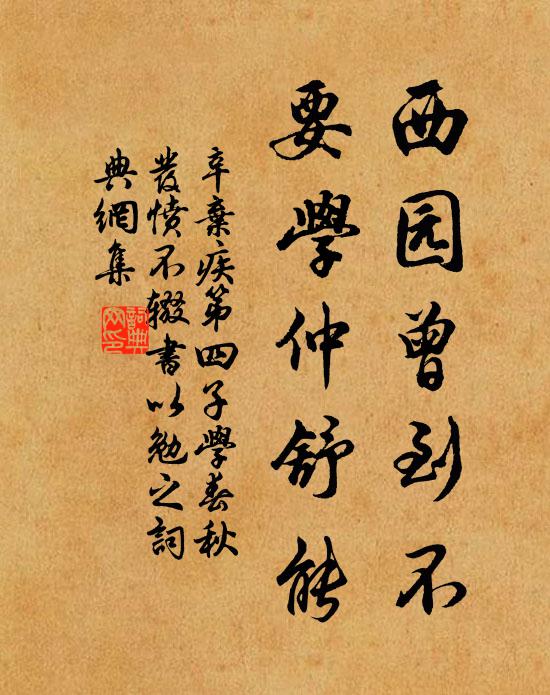 西园曾到不
要學仲舒能
辛棄疾第四子學春秋
發憤不辍書以勉之詞
典網集
詞典
网印